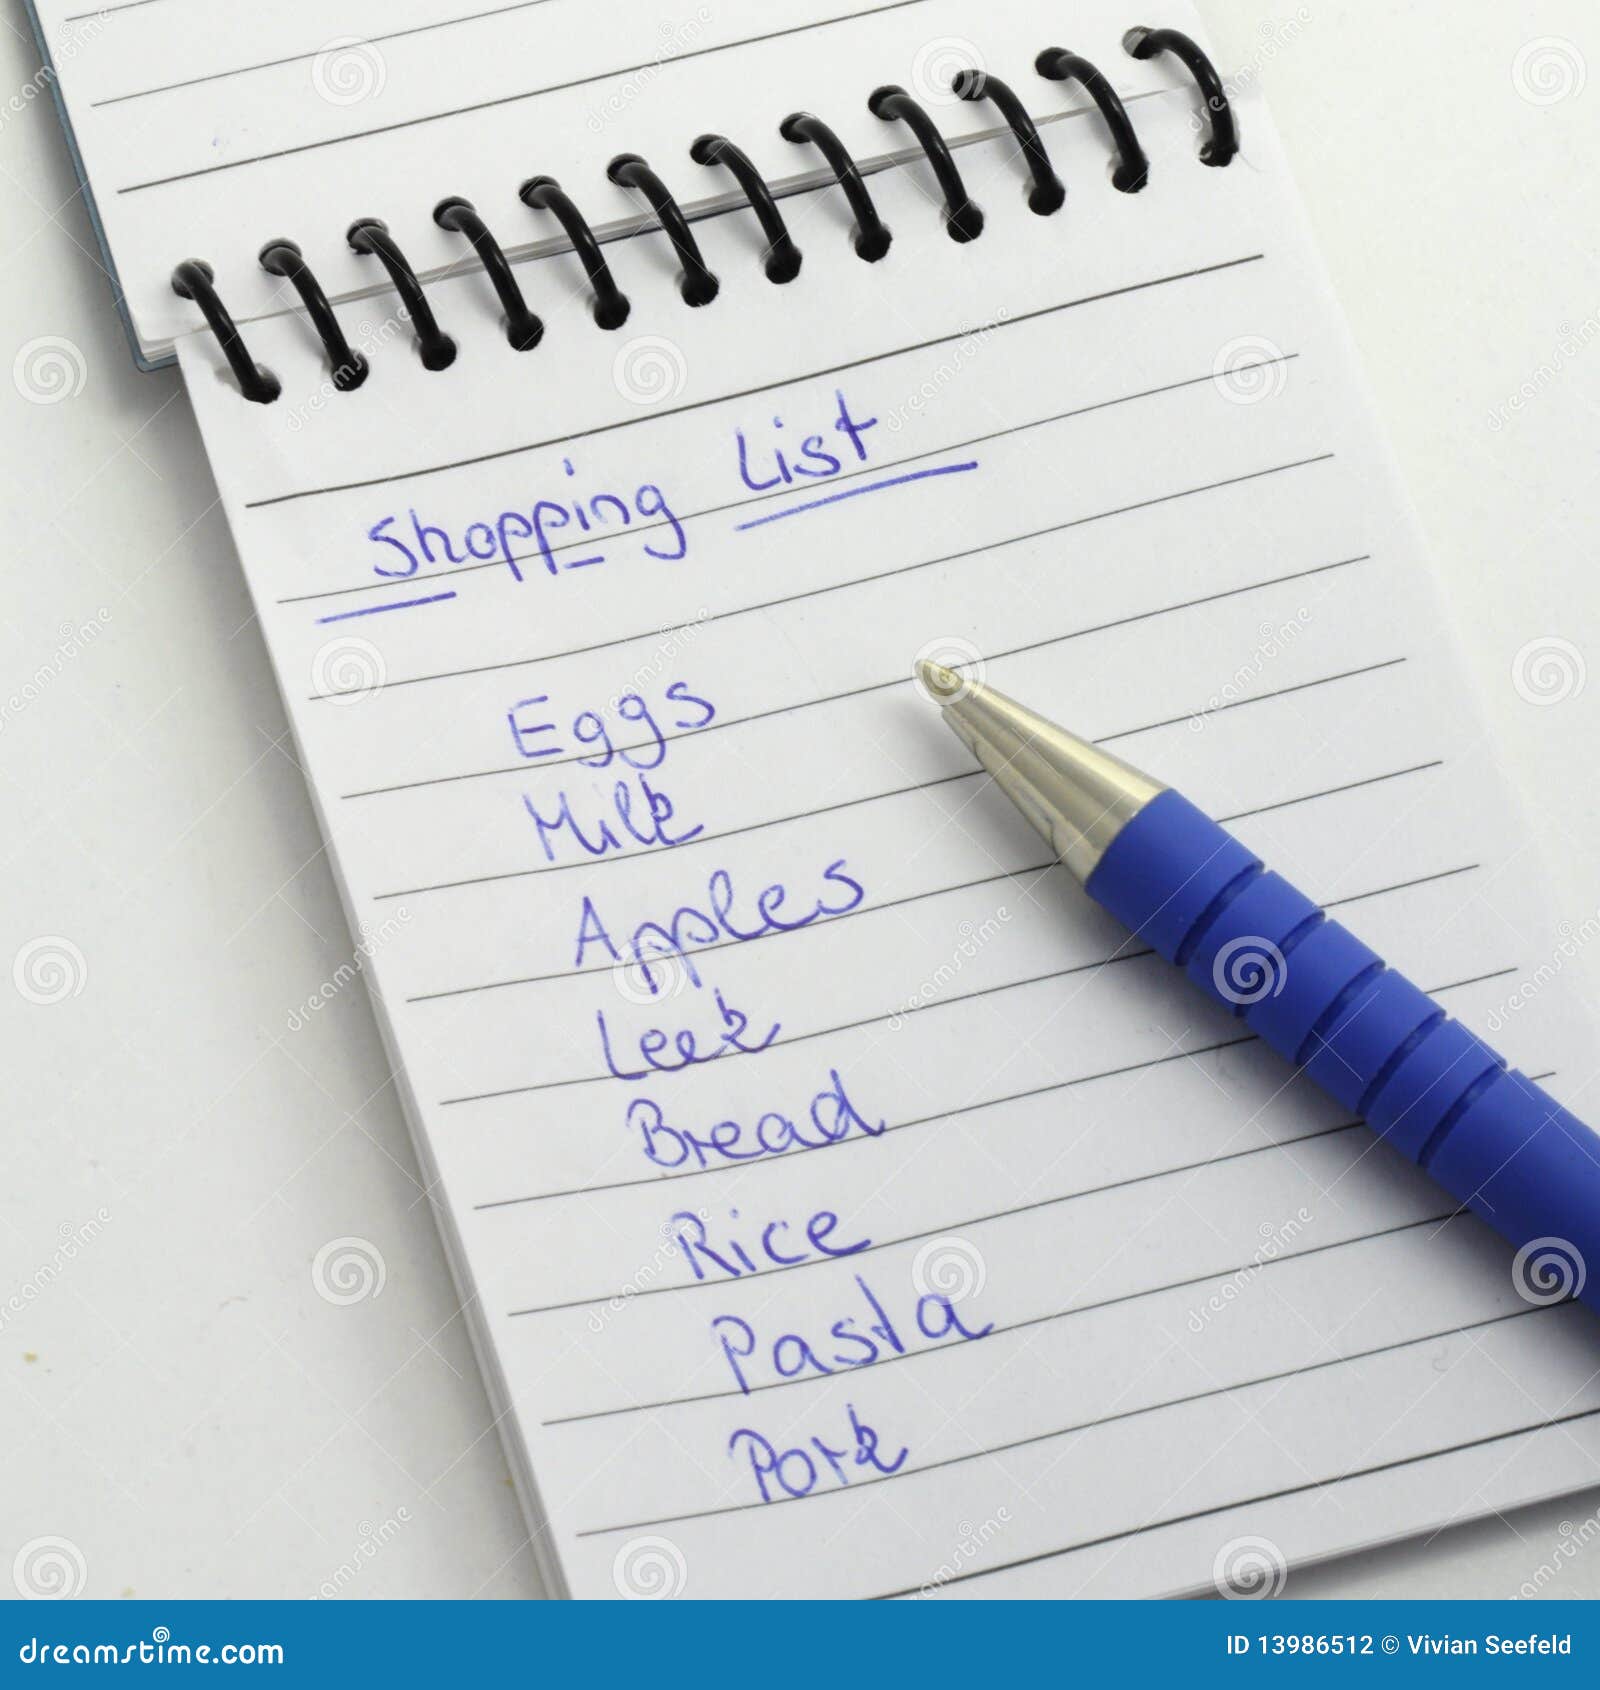 Shopping List
Eggs
Milk
Apples
Leek
Bread
Rice
Pasta
Pork
dreamstime.com
ID 13986512 © Vivian Seefeld